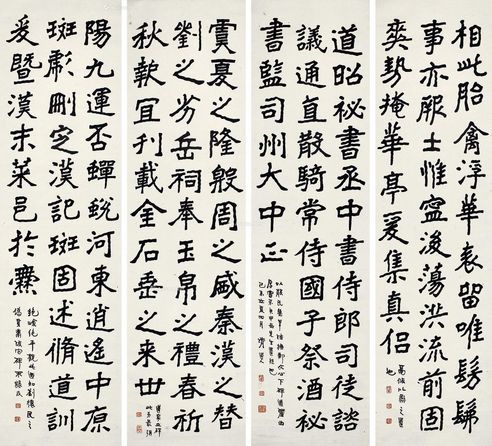 相此胎禽浮華表留唯髣髴
事亦厥土惟寍後蕩洪流前固
爽勢掩華亭爰集真侶
道昭祕書丞中書侍郎司徒諮
議通直散騎常侍國子祭酒祕
書監司州大中正
虞夏之隆殷周之盛秦漢之替
劉之劣岳祠奉玉帛之禮春祈
秋報宜刊載金石垂之來世
陽九運否蟬蛻河東逍遙中原
斑彪刪定漢記斑固述脩道訓
爰暨漢末菜邑於爨